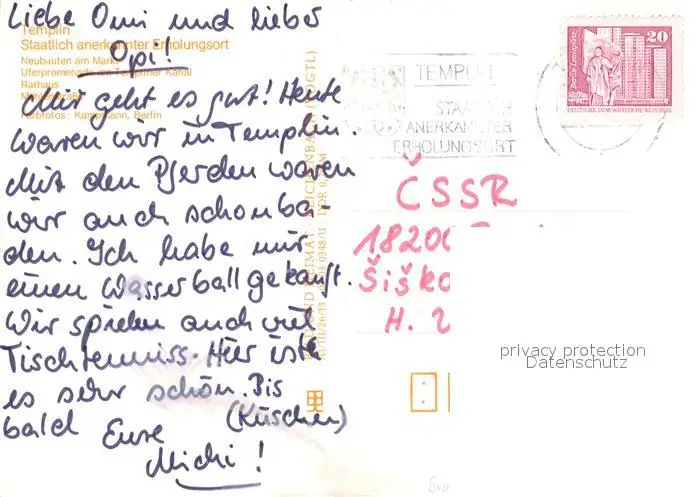 Liebe Omi und lieber
Opi!
Mir geht es gut! Heute
waren wir in Templin.
Mit den Pferden waren
wir auch schon ba-
den. Ich habe mir
einen Wasserball gekauft.
Wir spielen auch viel
Tischtennis. Hier ist
es sehr schön. Bis
bald (Küschen)
Eure
Michi!
Templin
Staatlich anerkannter Erholungsort
Neubauten am Markt
Uferpromenade am Templiner Kanal
Rathaus
Farbfotos: Kampmann, Berlin
TEMPLIN
STAATLICH
ANERKANNTER
ERHOLUNGSORT
20
DEUTSCHE DEMOKRATISCHE REPUBLIK
ČSSR
18200
H.
privacy protection
Datenschutz